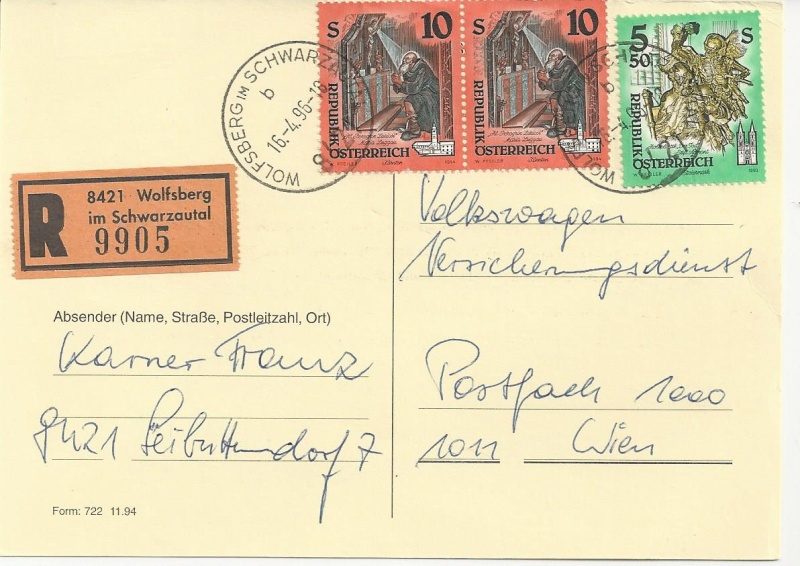 S 10
REPUBLIK
ÖSTERREICH
S 10
REPUBLIK
ÖSTERREICH
5 50 S
REPUBLIK
ÖSTERREICH
WOLFSBERG IM SCHWARZAUTAL
b
16.-4.96-18
R
8421 Wolfsberg
im Schwarzautal
9905
Volkswagen
Versicherungsdienst
Absender (Name, Straße, Postleitzahl, Ort)
Karner Franz
8421 Seibuttendorf 7
Postfach 1000
1011 Wien
Form: 722 11.94